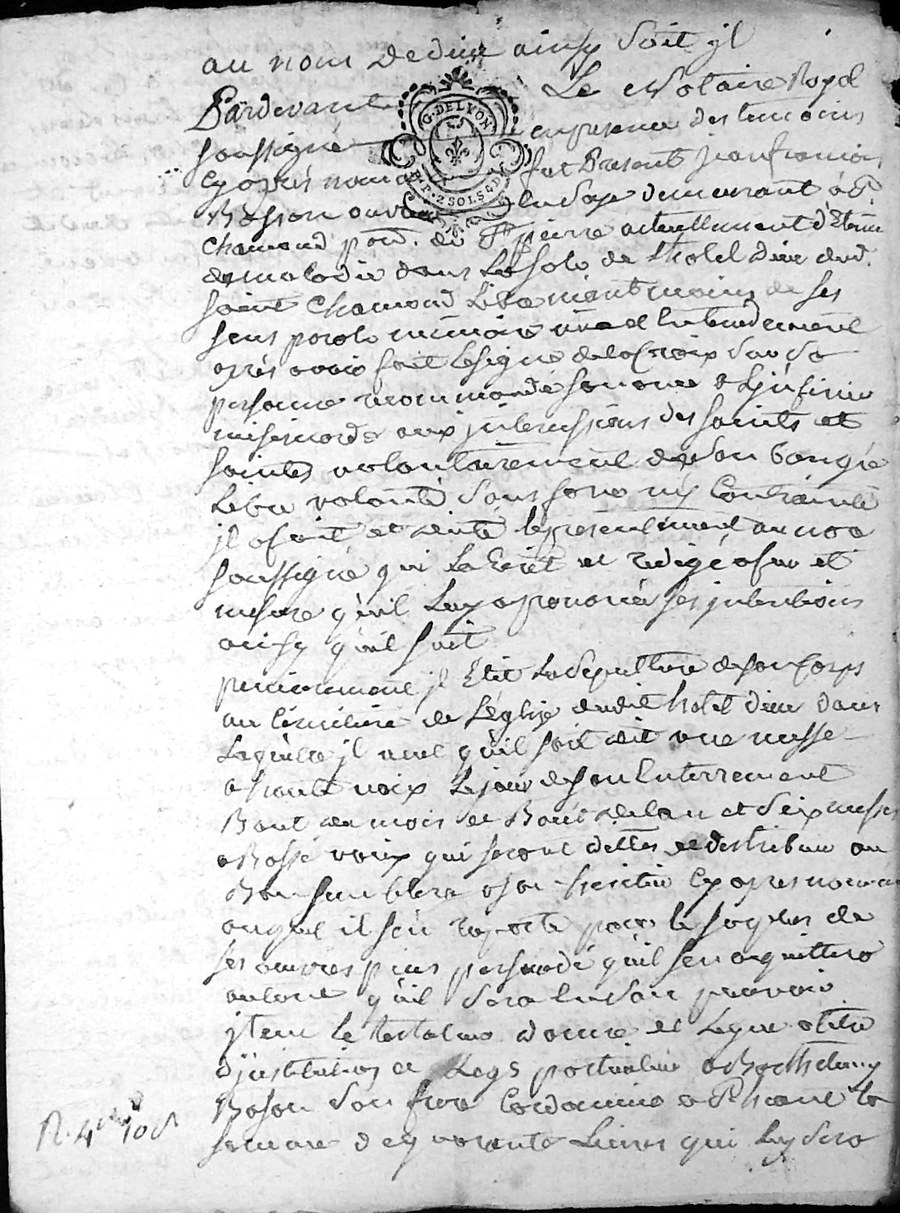 au nom de dieu ainsy soit jl
Pardevant Le Notaire Royal
soussigné en presence des temoins
cy apres nommés fut Present jean francois
Besson ouvrier en soye demeurant à St
Chamond par. de St pierre actuellement detenu
de maladie dans la sale de lhotel Dieu dud.
saint Chamond Libre neant moins de ses
sens parole memoire vue et Entendement
apres avoir fait le signe de la Croix sur sa
personne recommandé son ame à L'jnfinie
misericorde aux jntercessions des saints et
saintes volontairement de son bon gré
Libre volonté sans force ny Contrainte
jl a fait et dicté le present testament au no.re
soussigné qui La Ecrit et redigé a fur et
mesure qu'il Luy a prononcé ses jntentions
ainsy qu'il suit
premierement jl Elit La Sepulture de son Corps
au Cimetiere de L'église dudit hotel dieu dans
Laquelle jl veut qu'il soit dit une messe
a haute voix le jour de son Enterrement
Bout de mois et Bout de lan et Six messes
a Basse voix qui seront dittes et distribuer au
Bon son blera a son heritier cy apres nommé
auquel il s'en raporte pour le surplus de
ses œuvres pies persuadé qu'il s'en aquittera
autant qu'il sera En son pouvoir
jtem le testateur donne et Legue a titre
d'jnstitution et Legs particulier a Barthelemy
Besson son frere Cordonnier a St Chamond la
somme de quarante Livres qui luy sera
R. 4 10 s
G. DELYON
2 SOLS 4 D